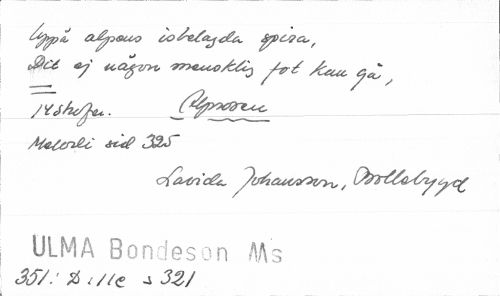 Uppå alpens isbelagda spira,
Dit ej någon mensklig fot kan gå,
14 strofer. Alprosen
Melodi sid 325
Lovida Johansson, Bollebygd
ULMA Bondeson Ms
351: D s 321